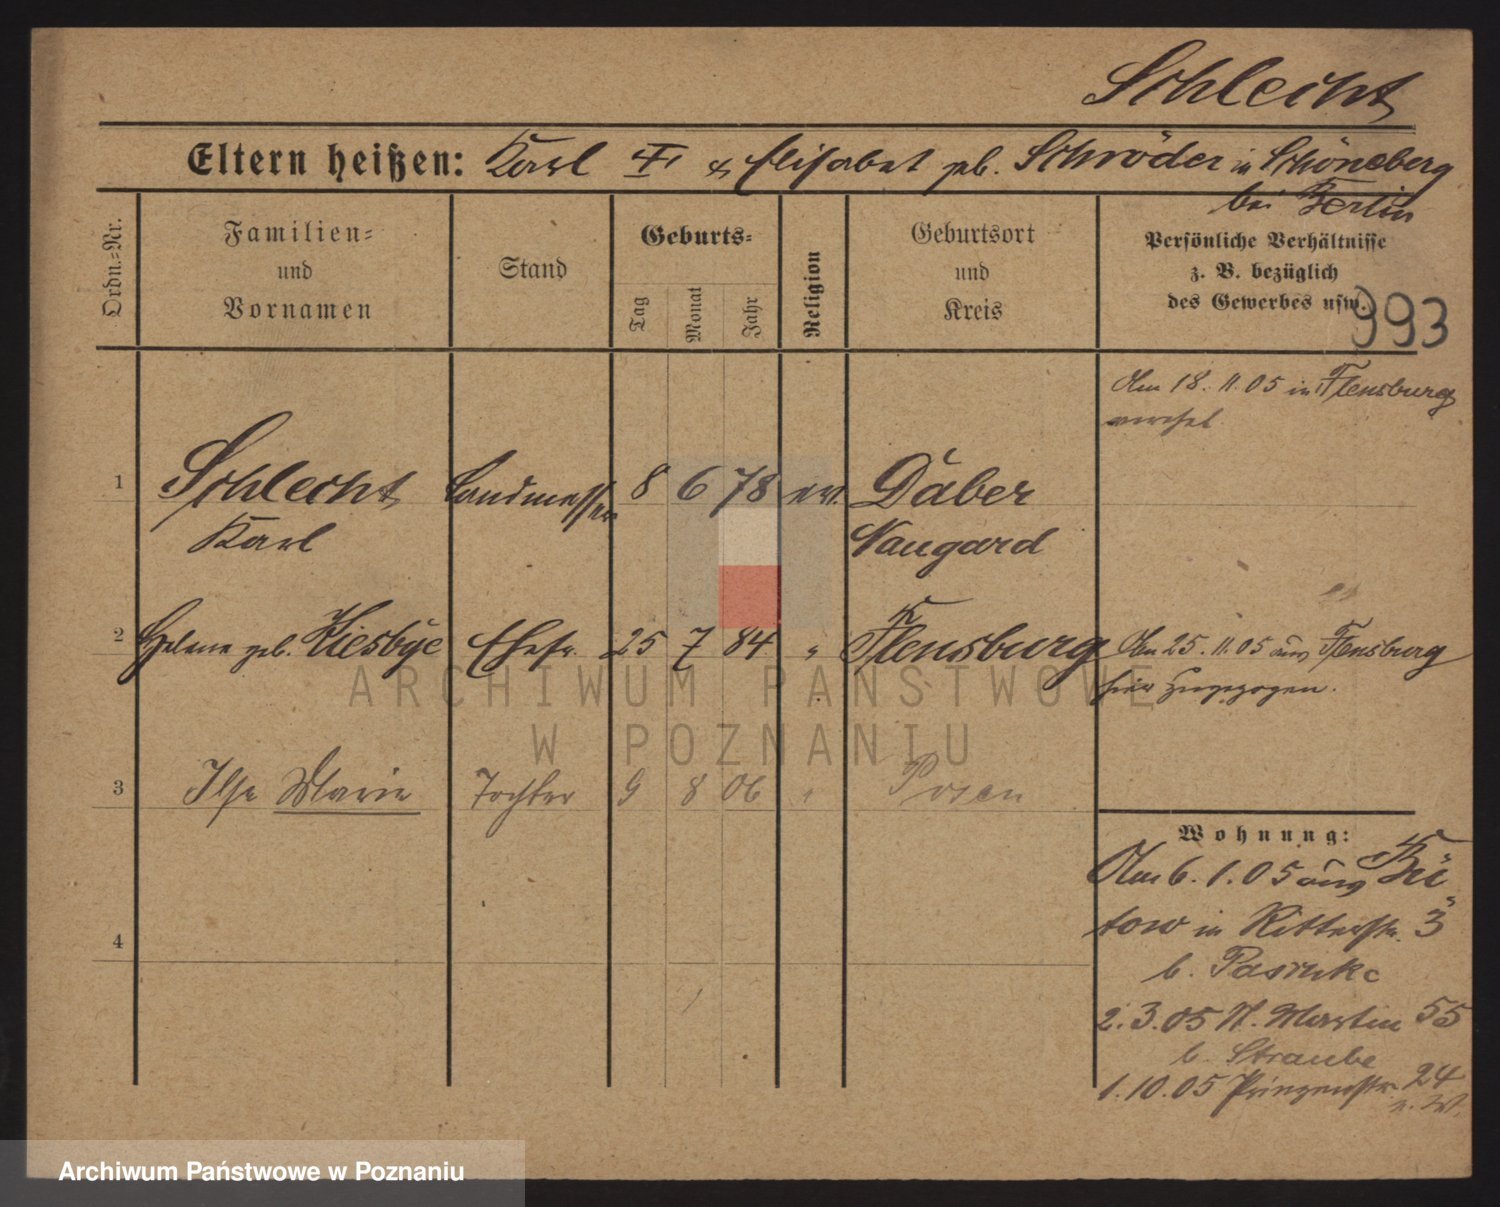 Schlecht
Eltern heißen: Karl & Elisabet geb. Schröder in Schöneberg
bei Berlin
Ordn.-Nr.
Familien-
und
Vornamen
Stand
Geburts-
Tag
Monat
Jahr
Religion
Geburtsort
und
Kreis
Persönliche Verhältnisse
z. B. bezüglich
des Gewerbes usw.
993
Am 18. 11. 05 in Flensburg
verehel.
1 Schlecht Landmesser 8 6 78 ev. Daber
Karl Naugard
2 Helene geb. Kiesbÿe Ehefr. 25 7 84 " Flensburg
Am 25. 11. 05 aus Flensburg
hier zugezogen.
3 Ilse Marie Tochter 9 8 06 " Posen
4
Wohnung:
Am 6. 1. 05 aus Bü
tow in Ritterstr. 3
b.
2. 3. 05 St. Martin 55
b. Straube
1. 10. 05 Prinzenstr. 24
e. W.
ARCHIWUM PAŃSTWOWE
W POZNANIU
Archiwum Państwowe w Poznaniu